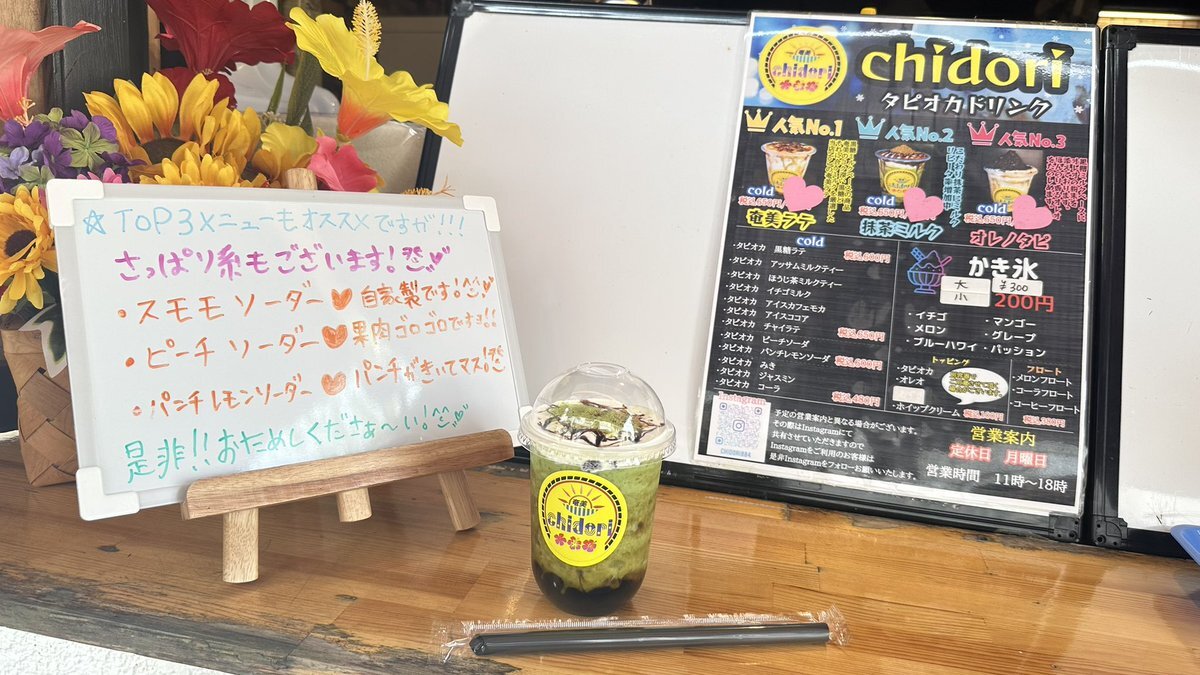 ☆TOP3メニューもオススメですが!!!
さっぱり系もございます!
・スモモソーダー♥自家製です!
・ピーチソーダー♥果肉ゴロゴロです!!
・パンチレモンソーダー♥パンチがきいてマス!
是非!!おためしくださぁ〜い!
chidori
chidori
タピオカドリンク
人気No.1
人気No.2
人気No.3
cold
税込650円
奄美ラテ
cold
税込650円
抹茶ミルク
cold
税込650円
オレノタピ
cold
・タピオカ 黒糖ラテ 税込600円
・タピオカ アッサムミルクティー
・タピオカ ほうじ茶ミルクティー
・タピオカ イチゴミルク
・タピオカ アイスカフェモカ
・タピオカ アイスココア
・タピオカ チャイラテ 税込650円
・タピオカ ピーチソーダ
・タピオカ パンチレモンソーダ 税込600円
・タピオカ みき
・タピオカ ジャスミン
・タピオカ コーラ 税込480円
かき氷
大 ¥300
小 200円
・イチゴ ・マンゴー
・メロン ・グレープ
・ブルーハワイ ・パッション
トッピング
・タピオカ
・オレオ
・ホイップクリーム 税込100円
フロート
・メロンフロート
・コーラフロート
・コーヒーフロート
税込380円
Instagram
CHIDORI884
予定の営業案内と異なる場合がございます。
その際はInstagramにて
共有させていただきますので
Instagramをご利用のお客様は
是非Instagramをフォローお願いいたします。
営業案内
定休日 月曜日
営業時間 11時〜18時
奄美
chidori